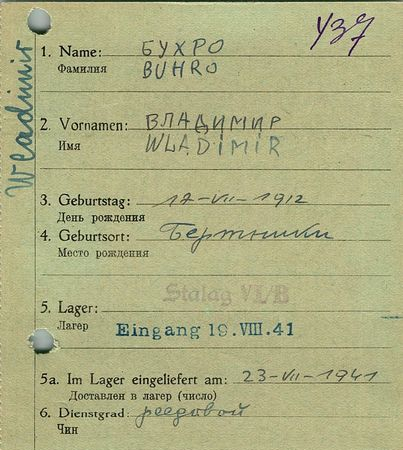 Wladimir
УЗ7
1. Name: БУХРО
Фамилия BUHRO
2. Vornamen: ВЛАДИМИР
Имя WLADIMIR
3. Geburtstag: 17-VII-1912
День рождения
4. Geburtsort: Бертники
Место рождения
Stalag VI/B
5. Lager:
Лагер Eingang 19. VIII. 41
5a. Im Lager eingeliefert am: 23-VII-1941
Доставлен в лагер (число)
6. Dienstgrad: реедовой
Чин